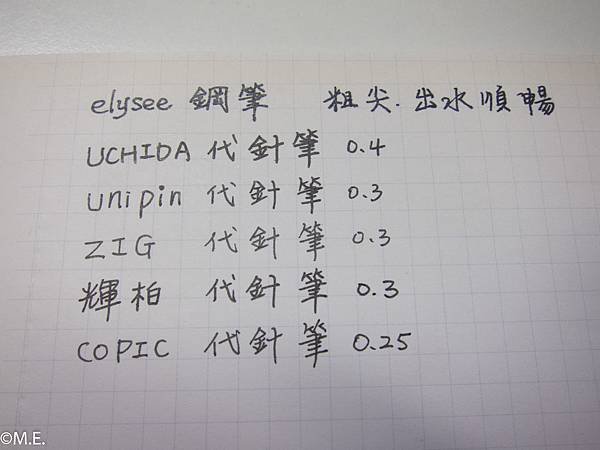 elysee 鋼筆 粗尖.出水順暢
UCHIDA 代針筆 0.4
unipin 代針筆 0.3
ZIG 代針筆 0.3
輝柏 代針筆 0.3
COPIC 代針筆 0.25
©M.E.